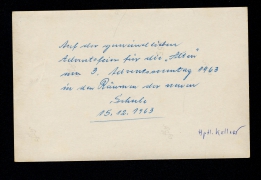 Auf der gemeindlichen
Adventsfeier für die „Alten"
am 3. Adventssonntag 1963
in den Räumen der neuen
Schule
15.12.1963
Hptl. Kellner